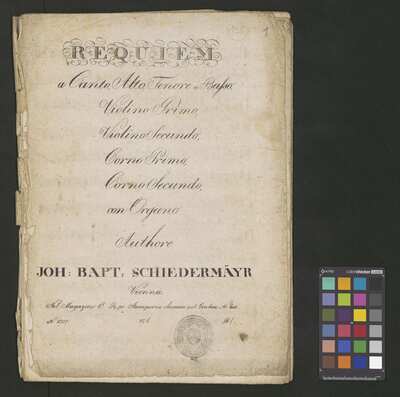 1
REQUIEM
a Canto Alto Tenore e Basso
Violino Primo
Violino Secundo,
Corno Primo
Corno Secundo,
con Organo
Authore
JOH: BAPT: SCHIEDERMAYR
Vienna